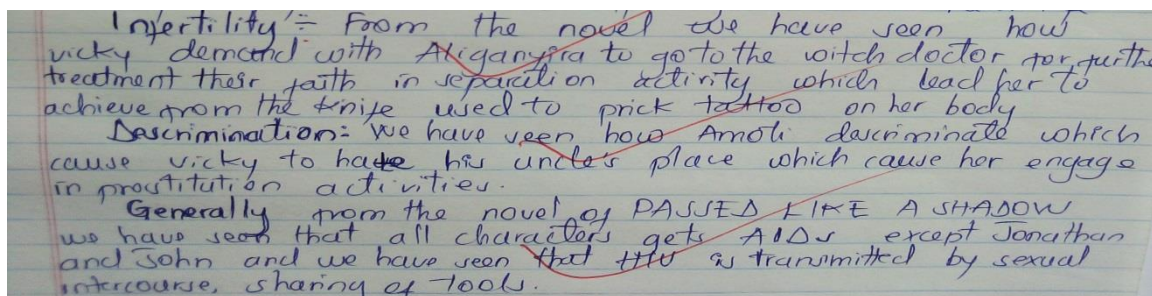 Infertility:= From the novel we have seen how
vicky demand with Aliganyira to go to the witch doctor for furthe
treatment their faith in separation activity which lead her to
achieve from the knife used to prick tattoo on her body
Descrimination:= We have seen how Amoli descriminate which
cause vicky to hate his uncle's place which cause her engage
in prostitution activities.
Generally from the novel of PASSED LIKE A SHADOW
we have seen that all characters gets AIDs except Jonathan
and John and we have seen that HIV is transmitted by sexual
intercourse, sharing of Tools.